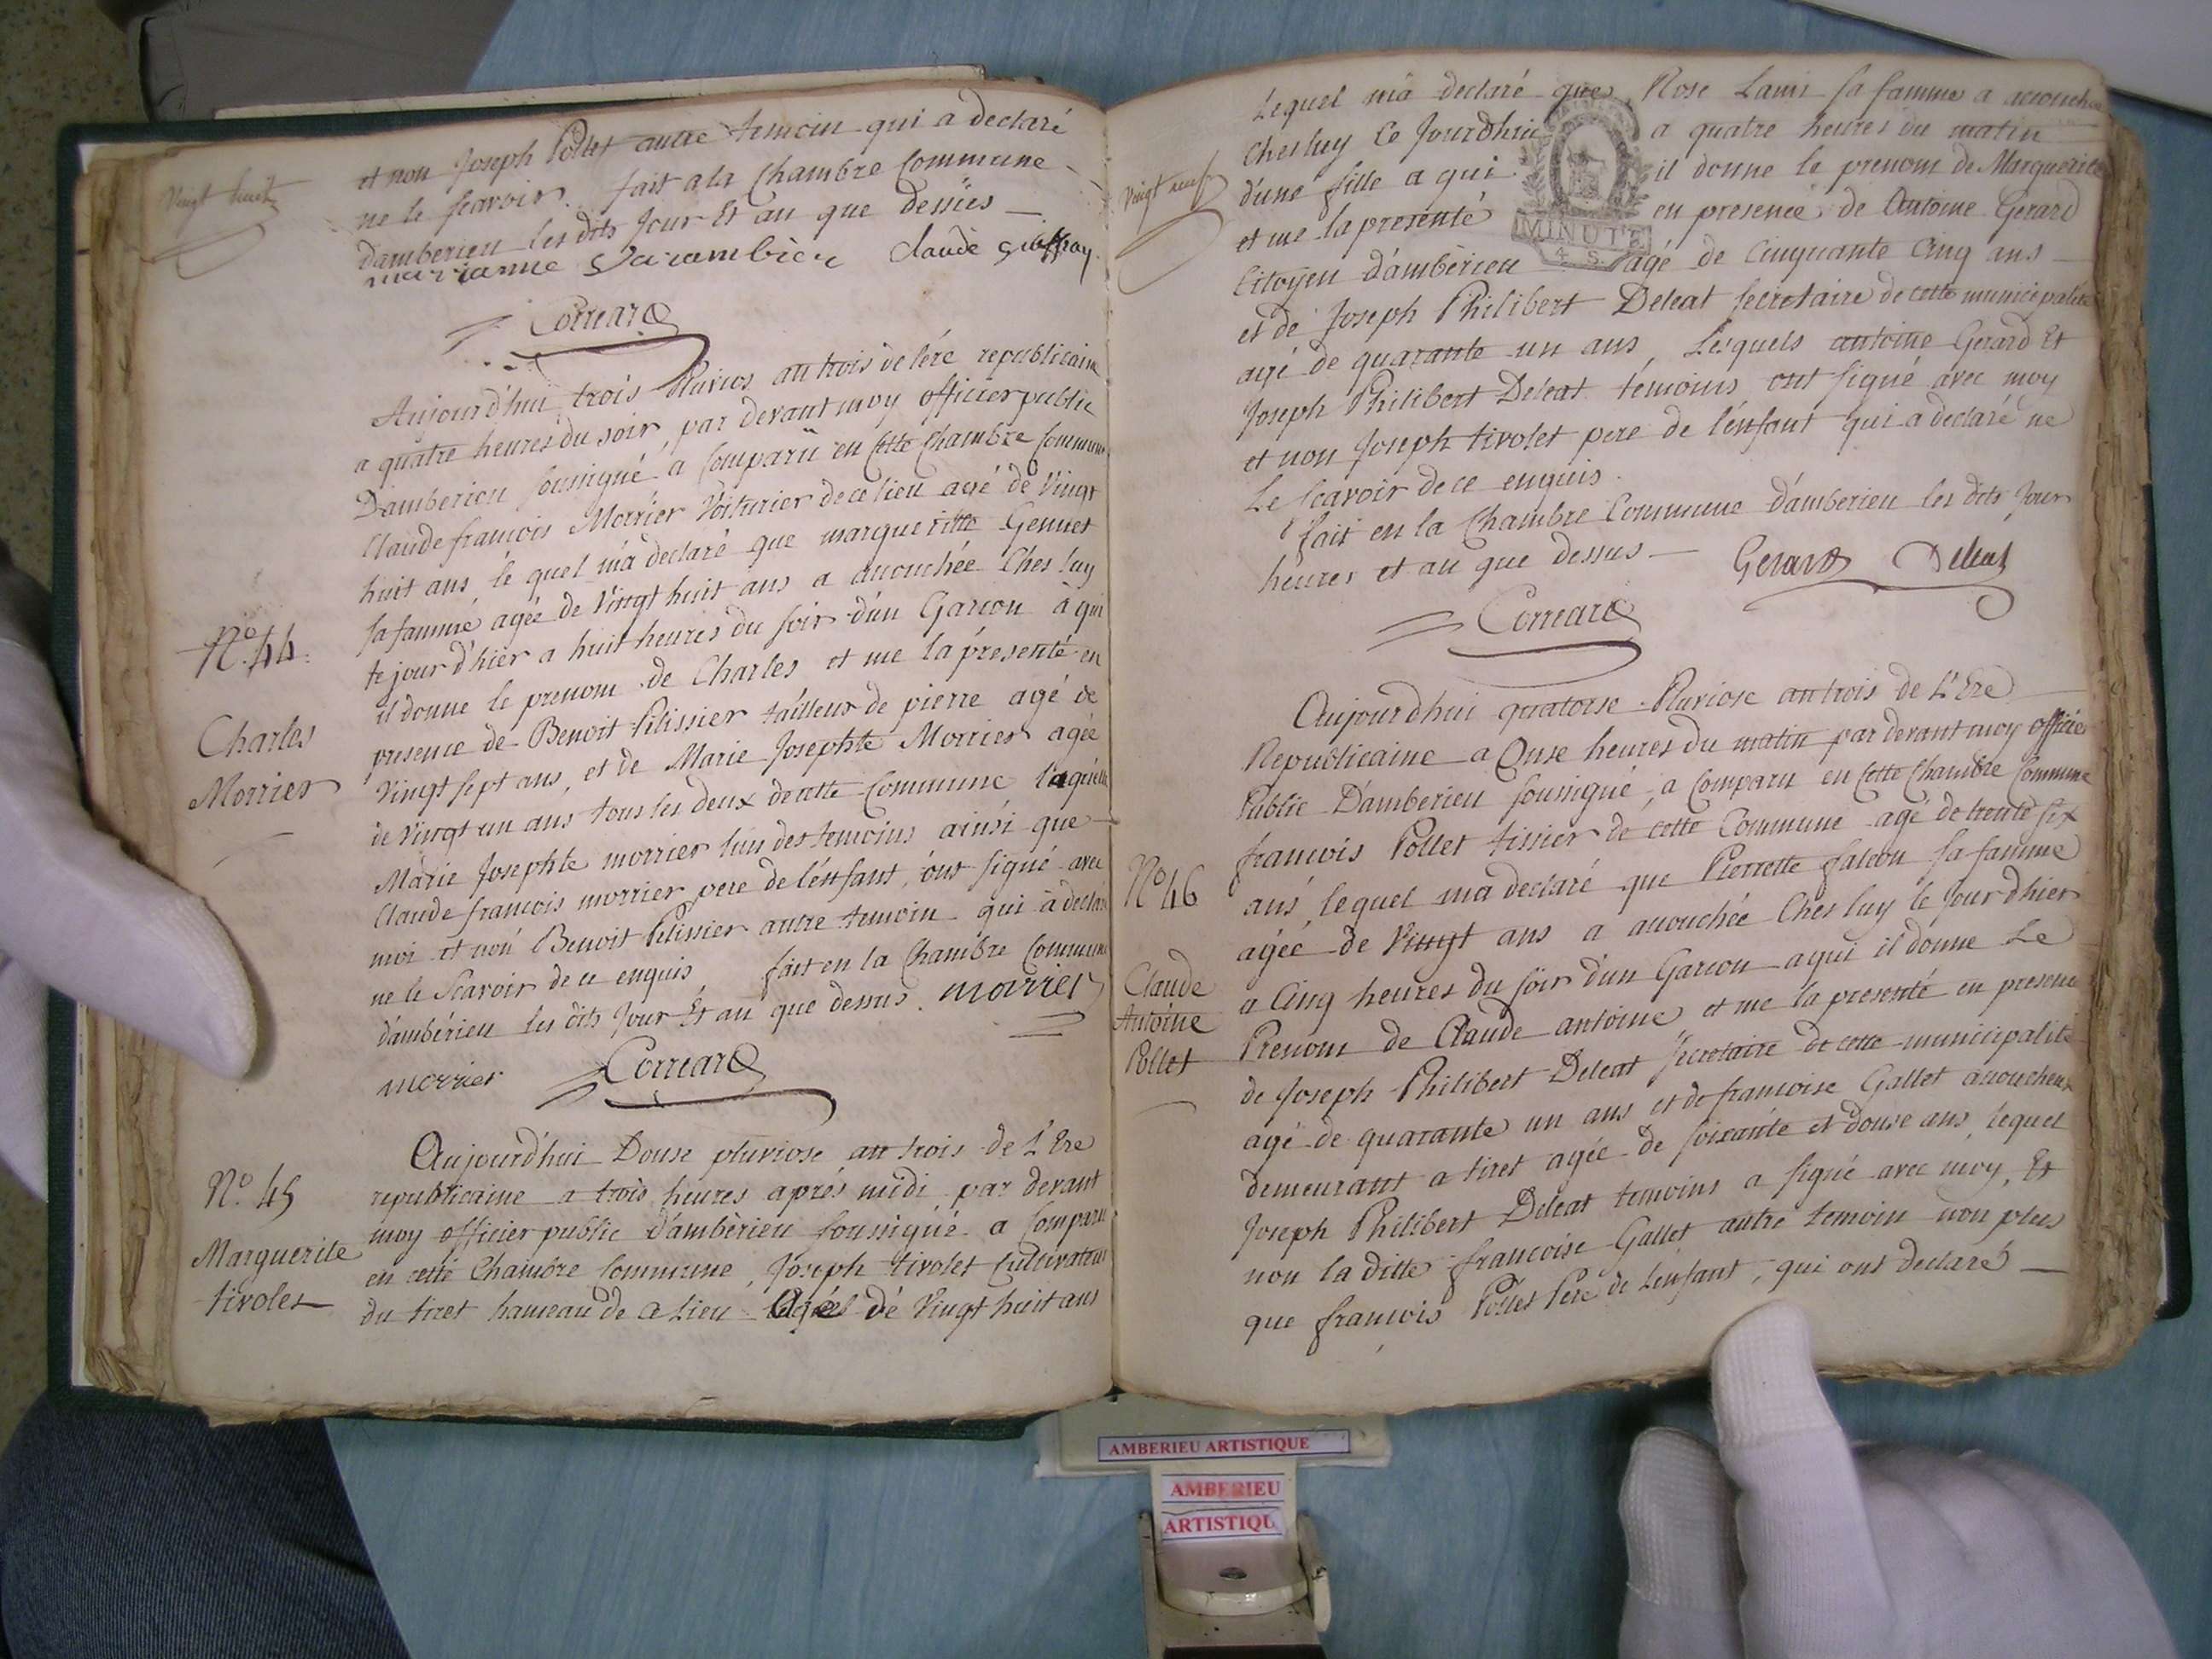 Vingt huit
et non Joseph Pollet autre temoin qui a declaré
ne le scavoir. fait a la Chambre Commune
d'amberieu les dits Jour Et an que dessus —
marianne Claude
Correard
Aujourd'hui trois Pluvios an trois de l'ére republicaine
a quatre heures du soir, par devant moy officier public
D'amberieu soussigné a Comparu en Cette Chambre Commune
Claude francois Morrier Voiturier de ce lieu agé de Vingt
huit ans, le quel m'a declaré que margueritte Gennet
sa famme agée de Vingt huit ans a acouchée Ches luy
le jour d'hier a huit heures du soir d'un Garcon à qui
il donne le prenom de Charles et me la presenté en
presence de Benoit Pilissier tailleur de pierre agé de
Vingt sept ans, et de Marie Josephte Morrier agée
de Vingt un ans tous les deux de cette Commune laquelle
Marie Josephte morrier l'un des temoins ainsi que —
Claude francois morrier pere de l'enfant, ont signé avec
moi et non Benoit Pilissier autre temoin qui a declaré
ne le Scavoir de ce enquis fait en la Chambre Commune
d'ambérieu les dits Jour Et an que dessus. morrier
morrier Correard
N° 44.
Charles
Morrier
Aujourd'hui Douse pluviose an trois de L'Ere
republicaine a trois heures aprés midi par devant
moy officier public d'ambèrieu soussigné a Comparu
en cette Chambre Commune, Joseph tivolet Cultivateur
du tiret hameau de ce Lieu Agé dé Vingt huit ans
N° 45
Marguerite
tivolet
Vingt neuf
Lequel m'a declaré que Rose Lami sa famme a acouchée
Ches luy Ce Jourdhui a quatre heures du matin
d'une fille a qui il donne le prenom de Marguerite
et me la presenté en presence de Antoine Gerard
MINUTE
4. S.
Citoyen d'ambèrieu agé de Cinquante Cinq ans —
et de Joseph Philibert Deleat secretaire de cette municipalité
agé de quarante un ans, Lesquels antoine Gerard Et
Joseph Philibert Deleat temoins ont signé avec moy
et non Joseph tivolet pere de l'enfant qui a declaré ne
Le scavoir de ce enquis.
fait en la Chambre Commune d'amberieu les dits Jour
heures et an que dessus — Gerard Deleat
Correard
Aujourdhui quatorse Pluviose an trois de L'Ere
Republicaine a Onse heures du matin par devant moy officier
Public D'amberieu soussigné, a Comparu en Cette Chambre Commune
francois Pollet tissier de cette Commune agé de trente six
ans, lequel ma declaré que Pierrette falcon sa famme
agée de Vingt ans a acouchée Ches luy le Jour dhier
a Cinq heures du soir d'un Garcon a qui il donne Le
Prenom de Claude antoine et me la presenté en presence
de Joseph Philibert Deleat secretaire de cette municipalité
agé de quarante un ans et de francoise Gallet acoucheuse
demeurant a tiret agée de soixante et douse ans, lequel
Joseph Philibert Deleat temoins a signé avec moy, Et
non la ditte francoise Gallet autre temoin non plus
que francois Pollet Pere de Lenfant, qui ont declaré —
N° 46
Claude
Antoine
Pollet
AMBERIEU ARTISTIQUE
AMBERIEU
ARTISTIQU